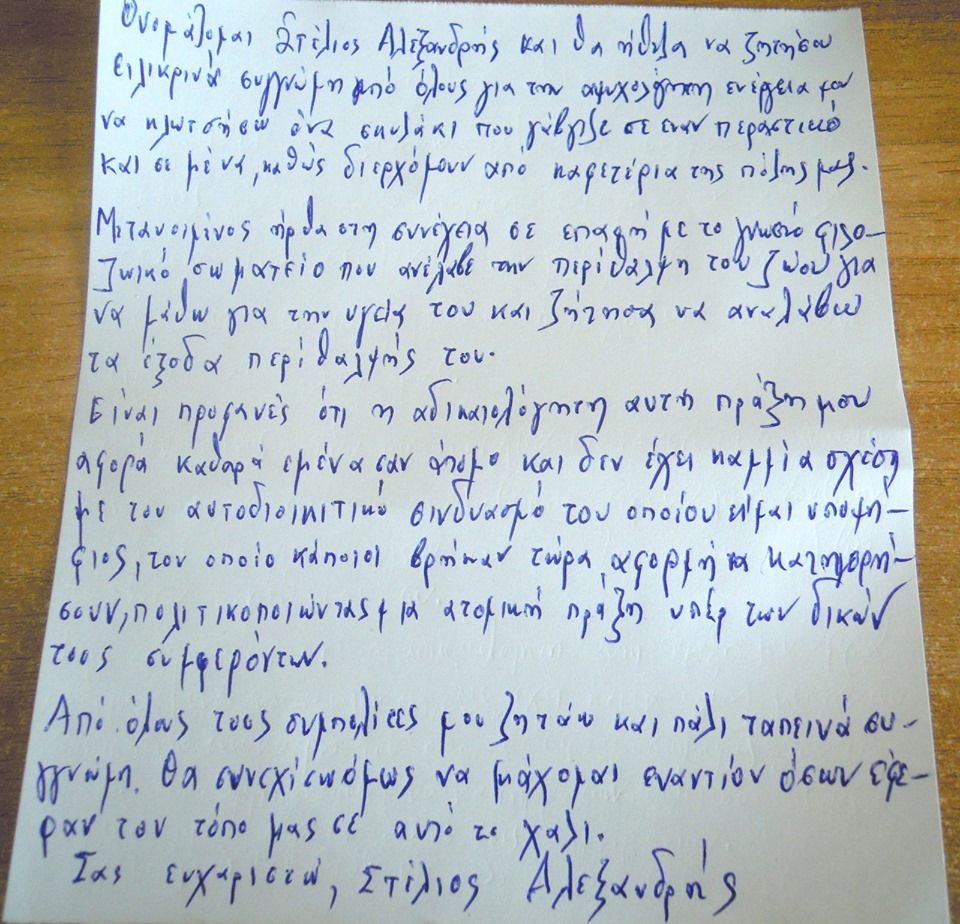 Ονομάζομαι Στέλιος Αλεξανδρής και θα ήθελα να ζητήσω
ειλικρινά συγγνώμη από όλους για την αψυχολόγητη ενέργεια μου
να κλωτσήσω ένα σκυλάκι που γάβγιζε σε έναν περαστικό
και σε μένα, καθώς διερχόμουν από καφετέρια της πόλης μας.
Μετανοιμένος ήρθα στη συνέχεια σε επαφή με το γνωστό φιλο-
ζωικό σωματείο που ανέλαβε την περίθαλψη του ζώου για
να μάθω για την υγεία του και ζήτησα να αναλάβω
τα έξοδα περίθαλψής του.
Είναι προφανές ότι η αδικαιολόγητη αυτή πράξη μου
αφορά καθαρά εμένα σαν άτομο και δεν έχει καμμία σχέση
με τον αυτοδιοικιτικό σινδυασμό του οποίου είμαι υποψή-
φιος, τον οποίο κάποιοι βρήκαν τώρα αφορμή να κατηγορή-
σουν, πολιτικοποιώντας μια ατομική πράξη υπέρ των δικών
τους συμφερόντων.
Από όλους τους συμπολίτες μου ζητάω και πάλι ταπεινά συ-
γγνώμη. Θα συνεχίσω όμως να μάχομαι εναντίον όσων έφε-
ραν τον τόπο μας σε αυτό το χάλι.
Σας ευχαριστώ, Στέλιος Αλεξανδρής